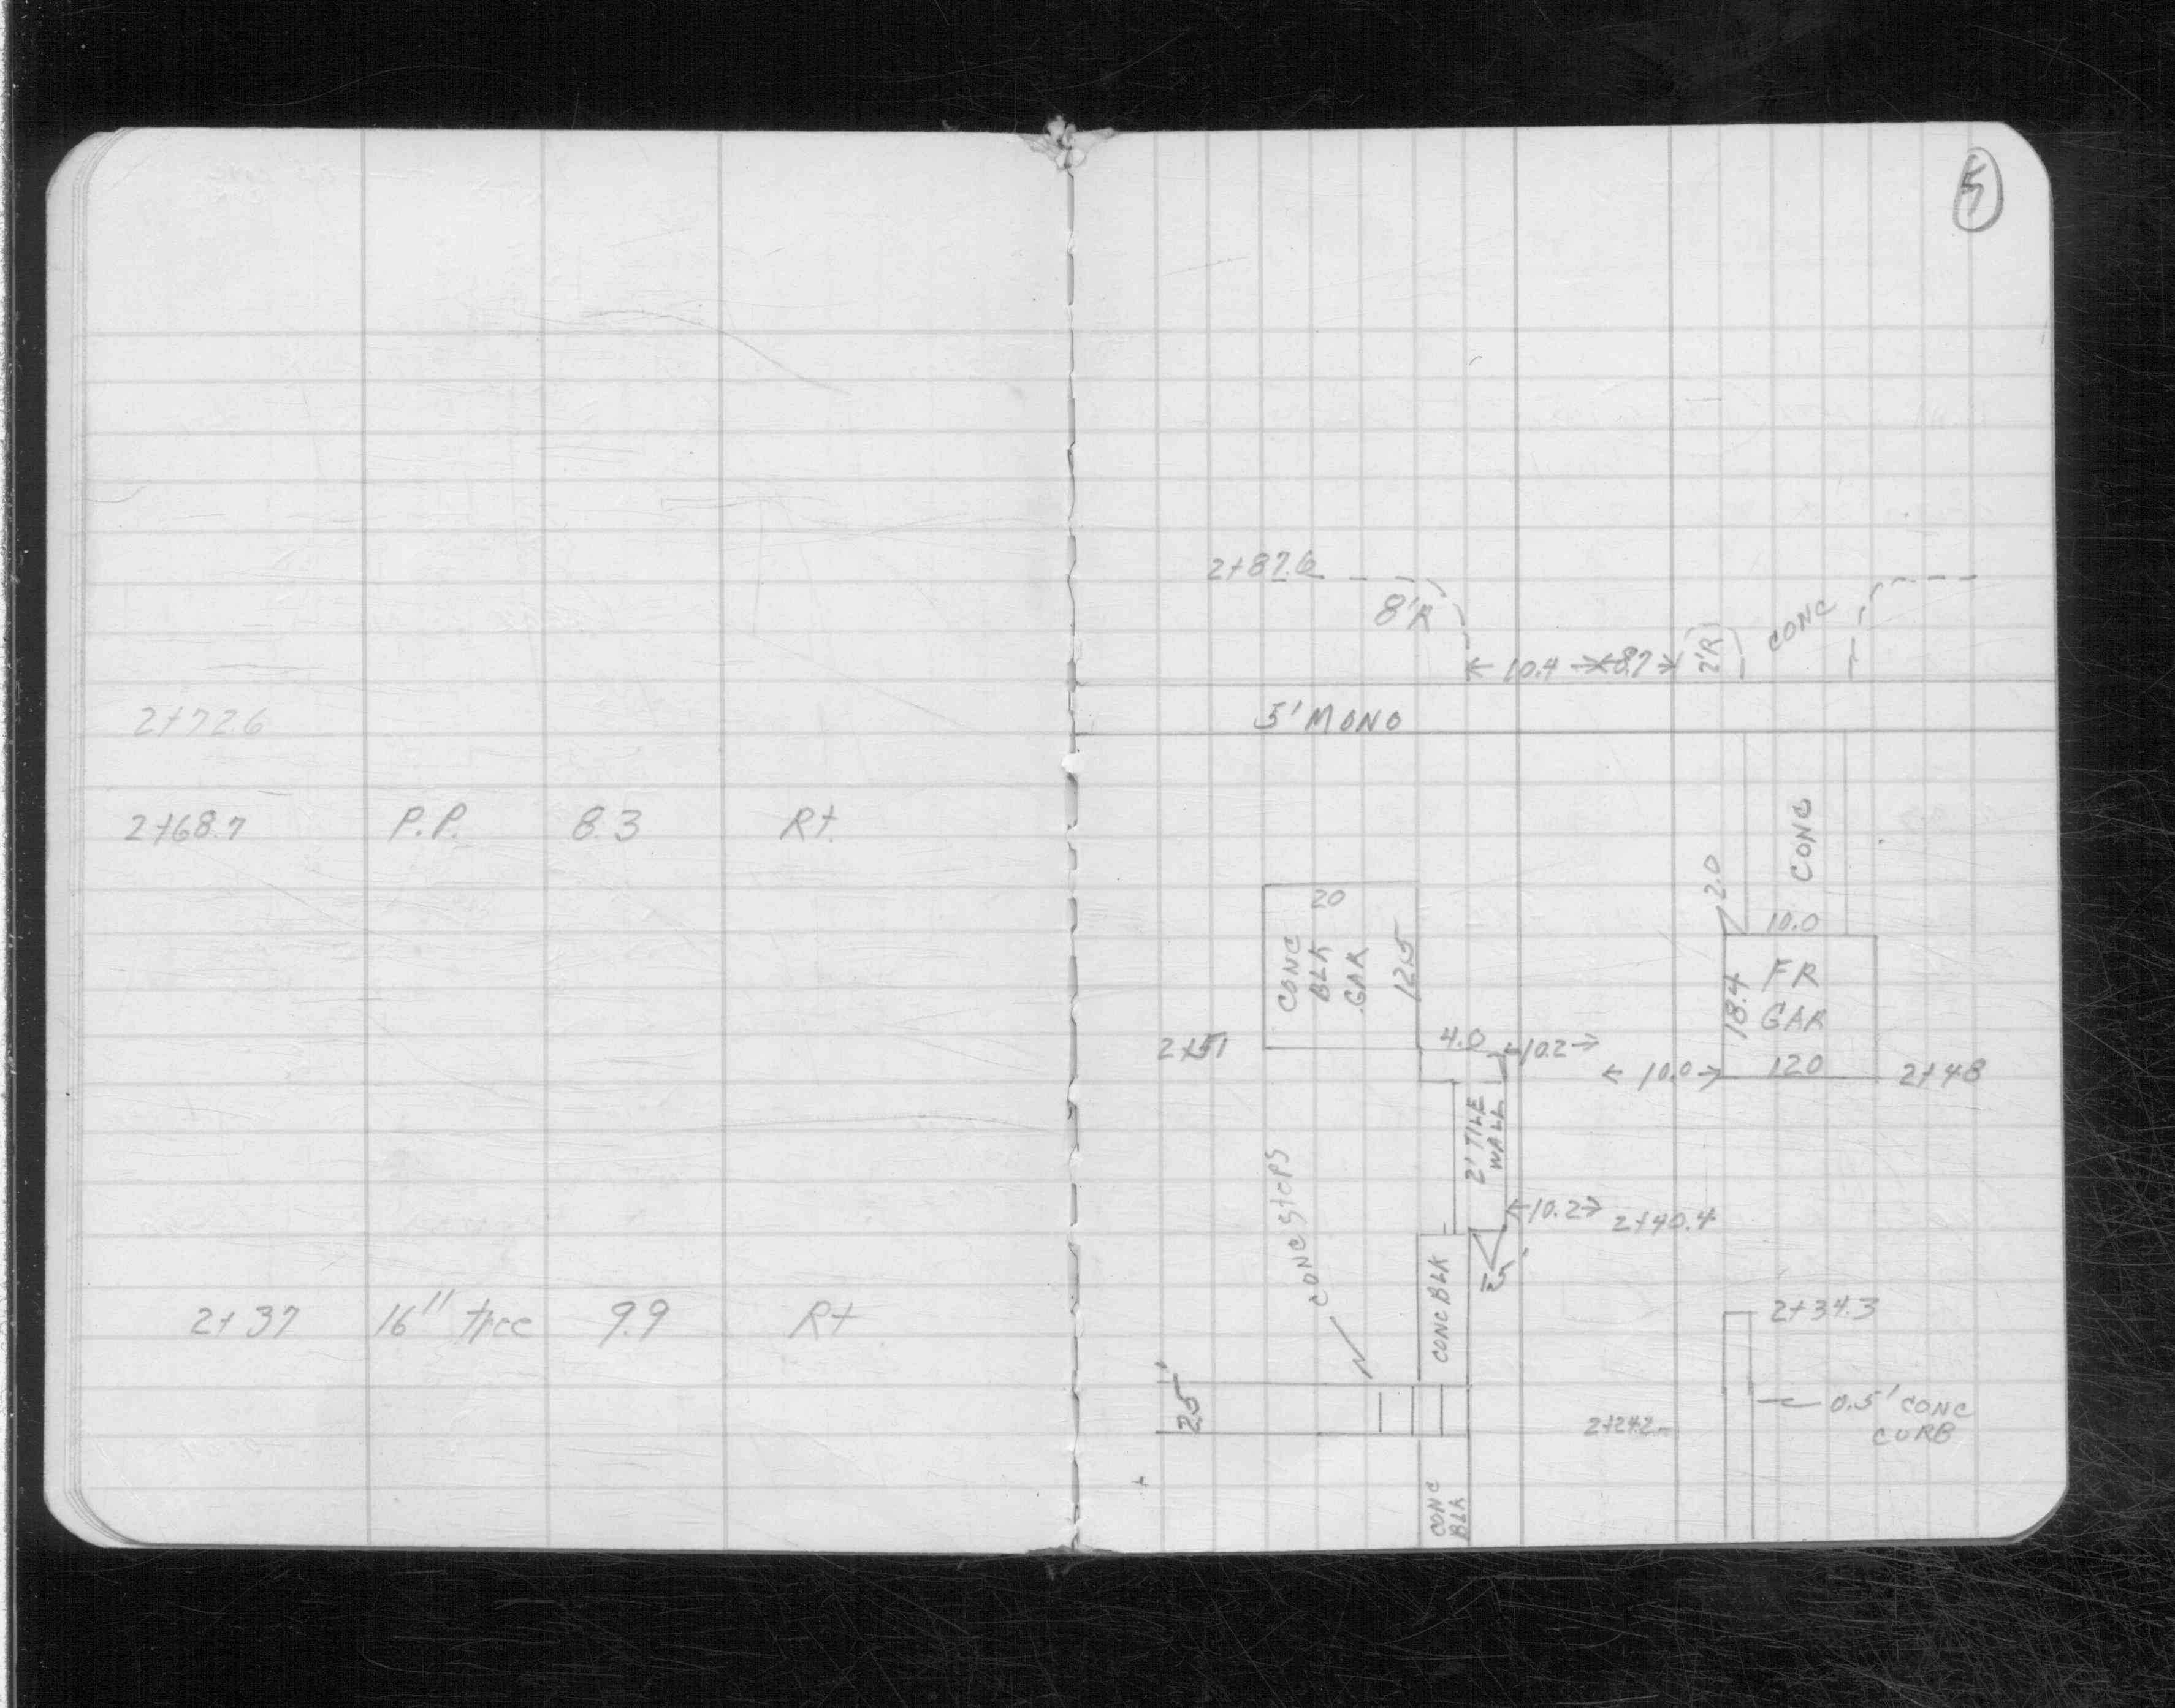 2+72.6
2+68.7 P.P. 8.3 Rt.
2+37 16" tree 9.9 Rt
5
2+87.6
8'R
10.4
8.7
2'R
CONC
5' MONO
20
CONC
BLK
GAR
12.5
2+51
4.0
10.2
CONC
2.0
10.0
18.4
FR
GAR
12.0
10.0
2+48
2' TILE
WALL
10.2
2+40.4
CONC StePS
CONC BLK
2+34.3
0.5' CONC
CURB
2+24.2
CONC
BLK